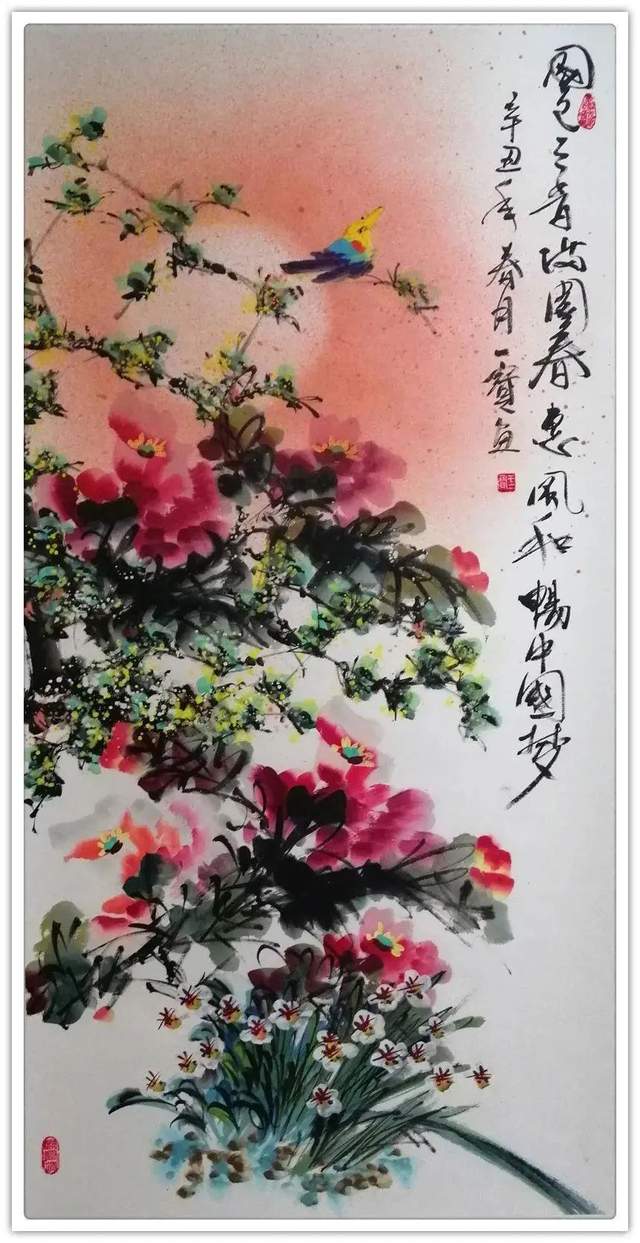 國色天香满園春惠風和暢中國梦
辛丑年春月一寶画